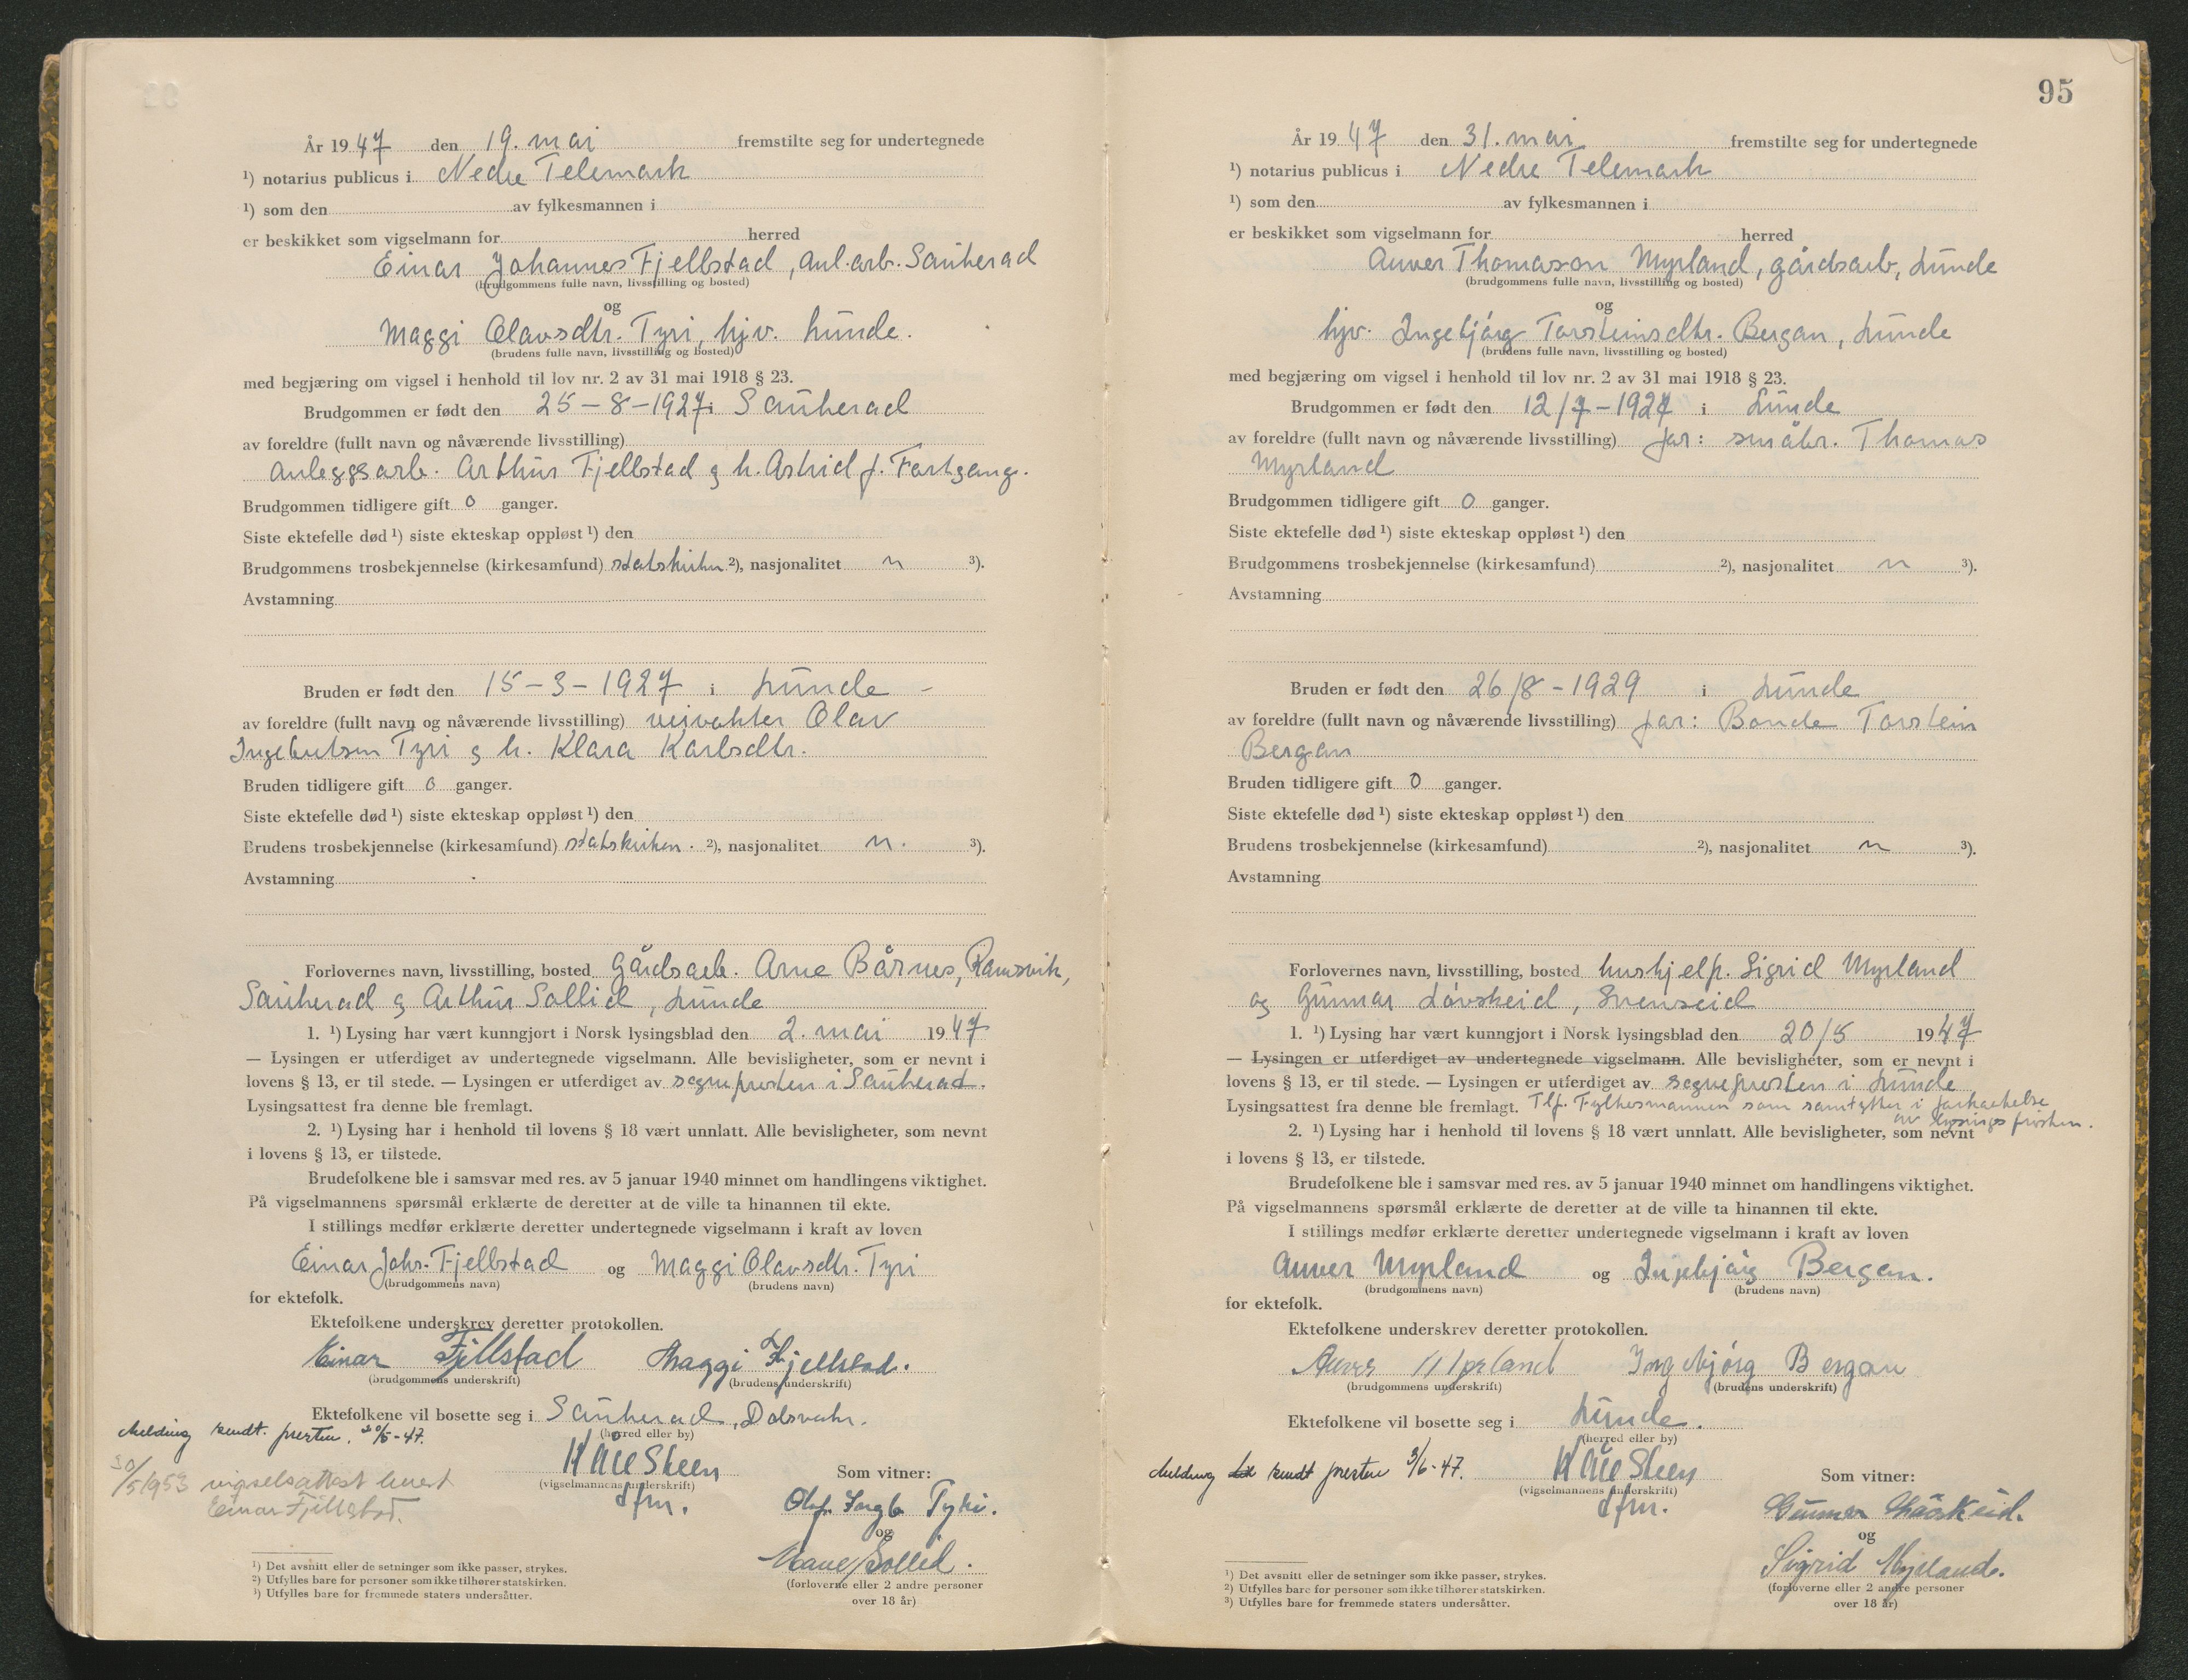 År 1947 den 19. mai fremstilte seg for undertegnede
¹) notarius publicus i Nedre Telemark
¹) som den av fylkesmannen i
er beskikket som vigselmann for herred
Einar Johannes Fjellstad, anl.arb. Sauherad
(brudgommens fulle navn, livsstilling og bosted)
og
Maggi Olavsdtr. Tyri, hjv. Lunde.
(brudens fulle navn, livsstilling og bosted)
med begjæring om vigsel i henhold til lov nr. 2 av 31 mai 1918 § 23.
Brudgommen er født den 25-8-1927 i Sauherad
av foreldre (fullt navn og nåværende livsstilling)
Anleggsarb. Arthur Fjellstad g h. Astrid f. Fartgang.
Brudgommen tidligere gift 0 ganger.
Siste ektefelle død ¹) siste ekteskap oppløst ¹) den
Brudgommens trosbekjennelse (kirkesamfund) statskirken ²), nasjonalitet n ³).
Avstamning
Bruden er født den 15-3-1927 i Lunde -
av foreldre (fullt navn og nåværende livsstilling) veivokter Olav
Ingebretsen Tyri g h. Klara Karlsdtr.
Bruden tidligere gift 0 ganger.
Siste ektefelle død ¹) siste ekteskap oppløst ¹) den
Brudens trosbekjennelse (kirkesamfund) statskirken. ²), nasjonalitet n. ³).
Avstamning
Forlovernes navn, livsstilling, bosted Gårdsarb. Arne Bårnes, Ramsvik,
Sauherad g Arthur Sollid, Lunde
1. ¹) Lysing har vært kunngjort i Norsk lysingsblad den 2. mai 1947
— Lysingen er utferdiget av undertegnede vigselmann. Alle bevisligheter, som er nevnt i
lovens § 13, er til stede. — Lysingen er utferdiget av sogneprosten i Sauherad.
Lysingsattest fra denne ble fremlagt.
2. ¹) Lysing har i henhold til lovens § 18 vært unnlatt. Alle bevisligheter, som nevnt
i lovens § 13, er tilstede.
Brudefolkene ble i samsvar med res. av 5 januar 1940 minnet om handlingens viktighet.
På vigselmannens spørsmål erklærte de deretter at de ville ta hinannen til ekte.
I stillings medfør erklærte deretter undertegnede vigselmann i kraft av loven
Einar Johs. Fjellstad og Maggi Olavsdtr. Tyri
(brudgommens navn) (brudens navn)
for ektefolk.
Ektefolkene underskrev deretter protokollen.
Einar Fjellstad Maggi Fjellstad.
(brudgommens underskrift) (brudens underskrift)
Ektefolkene vil bosette seg i Sauherad,
(herred eller by)
Melding sendt. presten. 20/5-47.
Kåre Steen
(vigselmannens underskrift)
dfm.
30/5 1953 vigselsattest levert
Einar Fjellstad.
Som vitner:
Olaf Ingb Tyri.
og
Sollid.
(forloverne eller 2 andre personer
over 18 år)
¹) Det avsnitt eller de setninger som ikke passer, strykes.
²) Utfylles bare for personer som ikke tilhører statskirken.
³) Utfylles bare for fremmede staters undersåtter.
95
År 1947 den 31. mai fremstilte seg for undertegnede
¹) notarius publicus i Nedre Telemark
¹) som den av fylkesmannen i
er beskikket som vigselmann for herred
Anver Thomason Myrland, gårdsarb, Lunde
(brudgommens fulle navn, livsstilling og bosted)
og
hjv. Ingebjørg Torsteinsdtr. Bergan, Lunde
(brudens fulle navn, livsstilling og bosted)
med begjæring om vigsel i henhold til lov nr. 2 av 31 mai 1918 § 23.
Brudgommen er født den 12/7-1927 i Lunde
av foreldre (fullt navn og nåværende livsstilling) far: småbr. Thomas
Myrland
Brudgommen tidligere gift 0 ganger.
Siste ektefelle død ¹) siste ekteskap oppløst ¹) den
Brudgommens trosbekjennelse (kirkesamfund) ²), nasjonalitet n ³).
Avstamning
Bruden er født den 26/8-1929 i Lunde
av foreldre (fullt navn og nåværende livsstilling) far: Bonde Torstein
Bergan
Bruden tidligere gift 0 ganger.
Siste ektefelle død ¹) siste ekteskap oppløst ¹) den
Brudens trosbekjennelse (kirkesamfund) ²), nasjonalitet n ³).
Avstamning
Forlovernes navn, livsstilling, bosted hushjelp. Sigrid Myrland
og Gunnar Løvskeid, Svenseid
1. ¹) Lysing har vært kunngjort i Norsk lysingsblad den 20/5 1947
— Lysingen er utferdiget av undertegnede vigselmann. Alle bevisligheter, som er nevnt i
lovens § 13, er til stede. — Lysingen er utferdiget av sogneprosten i Lunde
Lysingsattest fra denne ble fremlagt. Tlf. Fylkesmannen som samtykker i forkortelse
av lysingsfristen.
2. ¹) Lysing har i henhold til lovens § 18 vært unnlatt. Alle bevisligheter, som nevnt
i lovens § 13, er tilstede.
Brudefolkene ble i samsvar med res. av 5 januar 1940 minnet om handlingens viktighet.
På vigselmannens spørsmål erklærte de deretter at de ville ta hinannen til ekte.
I stillings medfør erklærte deretter undertegnede vigselmann i kraft av loven
Anver Myrland og Ingebjørg Bergan.
(brudgommens navn) (brudens navn)
for ektefolk.
Ektefolkene underskrev deretter protokollen.
Anver Myrland Ingebjørg Bergan
(brudgommens underskrift) (brudens underskrift)
Ektefolkene vil bosette seg i Lunde.
(herred eller by)
Melding sendt presten 3/6-47.
Kåre Steen
(vigselmannens underskrift)
dfm.
Som vitner:
Gunnar Løvskeid.
og
Sigrid Myrland.
(forloverne eller 2 andre personer
over 18 år)
¹) Det avsnitt eller de setninger som ikke passer, strykes.
²) Utfylles bare for personer som ikke tilhører statskirken.
³) Utfylles bare for fremmede staters undersåtter.